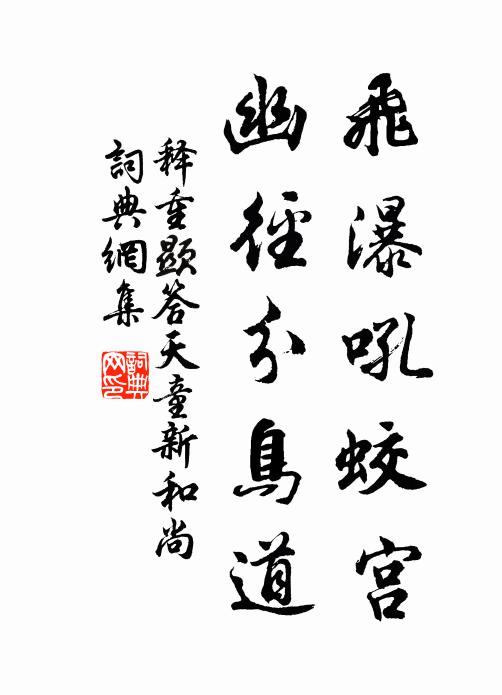 飛瀑吼蛟宮
幽徑分鳥道
釋重顯答天童新和尚
詞典網集
詞典網印